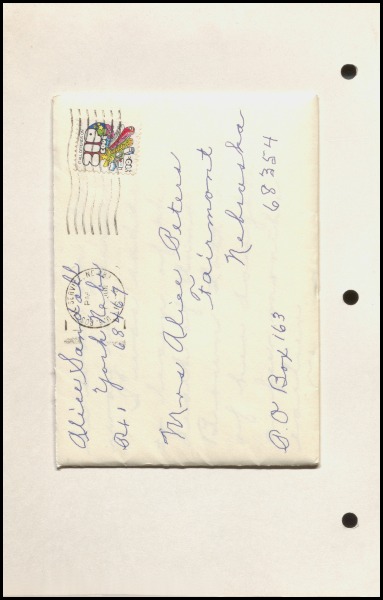 Alice Sandall
York Nebr
Rt 1 68467
Mrs Alice Peters
Fairmont
Nebraska
68354
P.O Box 163